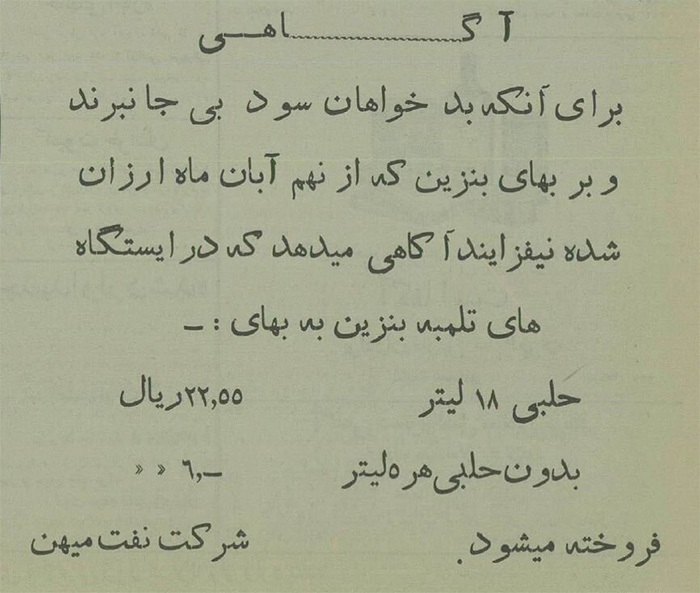 آ گـ........................اهـی
برای آنکه بد خواهان سود بی جا نبرند
و بر بهای بنزین که از نهم آبان ماه ارزان
شده نیفزایند آ گاهی میدهد که در ایستگاه
های تلمبه بنزین به بهای : ـ
حلبی ۱۸ لیتر ۲۲,۵۵ ریال
بدون حلبی هر ۵ لیتر ـ,۶ » »
فروخته میشود. شرکت نفت میهن